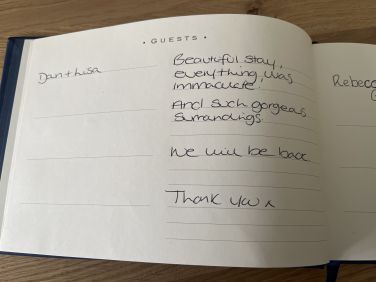 • GUESTS •
Dan + Lisa
Beautiful stay,
everything, was
immaculate!
And such gorgeous
surrandings.
We will be back
Thank you x
Rebecc